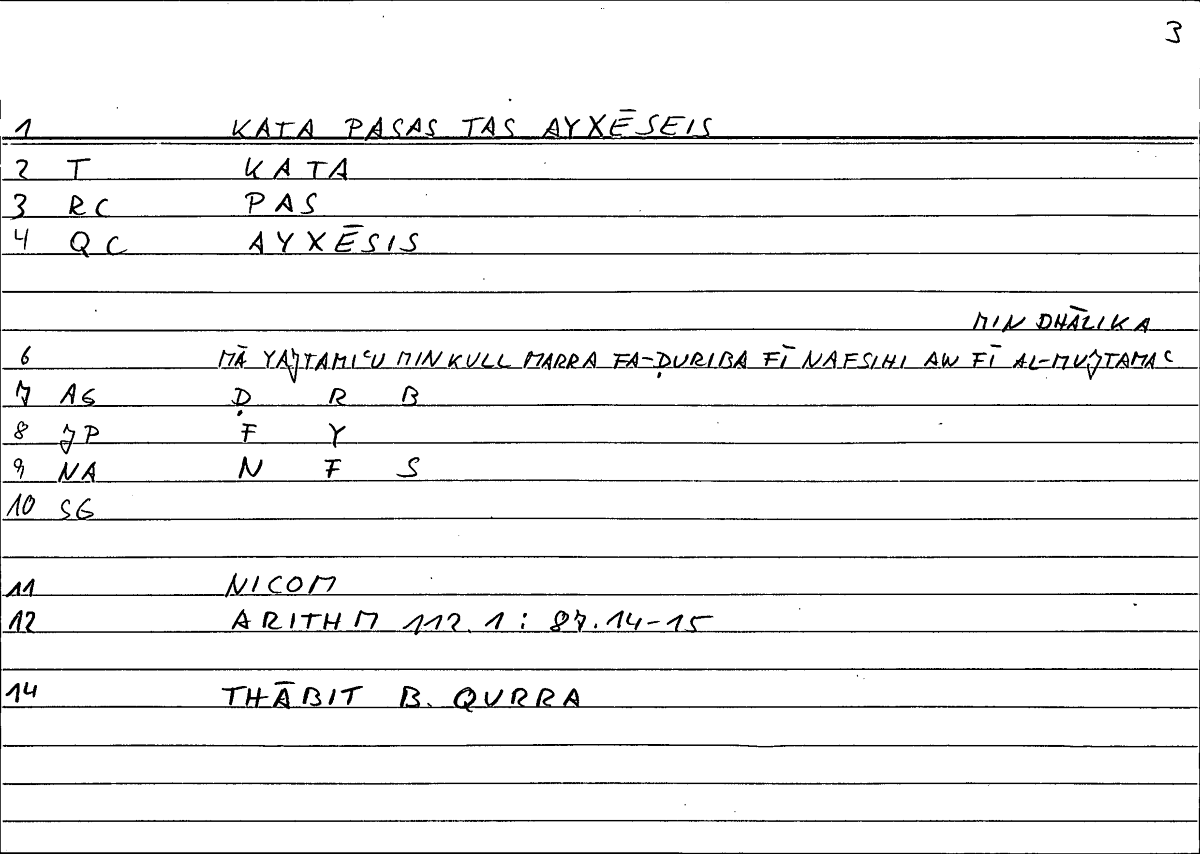 3
1 KATA PASAS TAS AYXĒSEIS
2 T KATA
3 RC PAS
4 QC AYXĒSIS
MIN DHĀLIKA
6 MĀ YAJTAMIʿU MIN KULL MARRA FA-ḌURIBA FĪ NAFSIHI AW FĪ AL-MUJTAMAʿ
7 AG Ḍ R B
8 JP F Y
9 NA N F S
10 SG
11 NICOM
12 ARITHM 112.1 : 87.14-15
14 THĀBIT B. QURRA